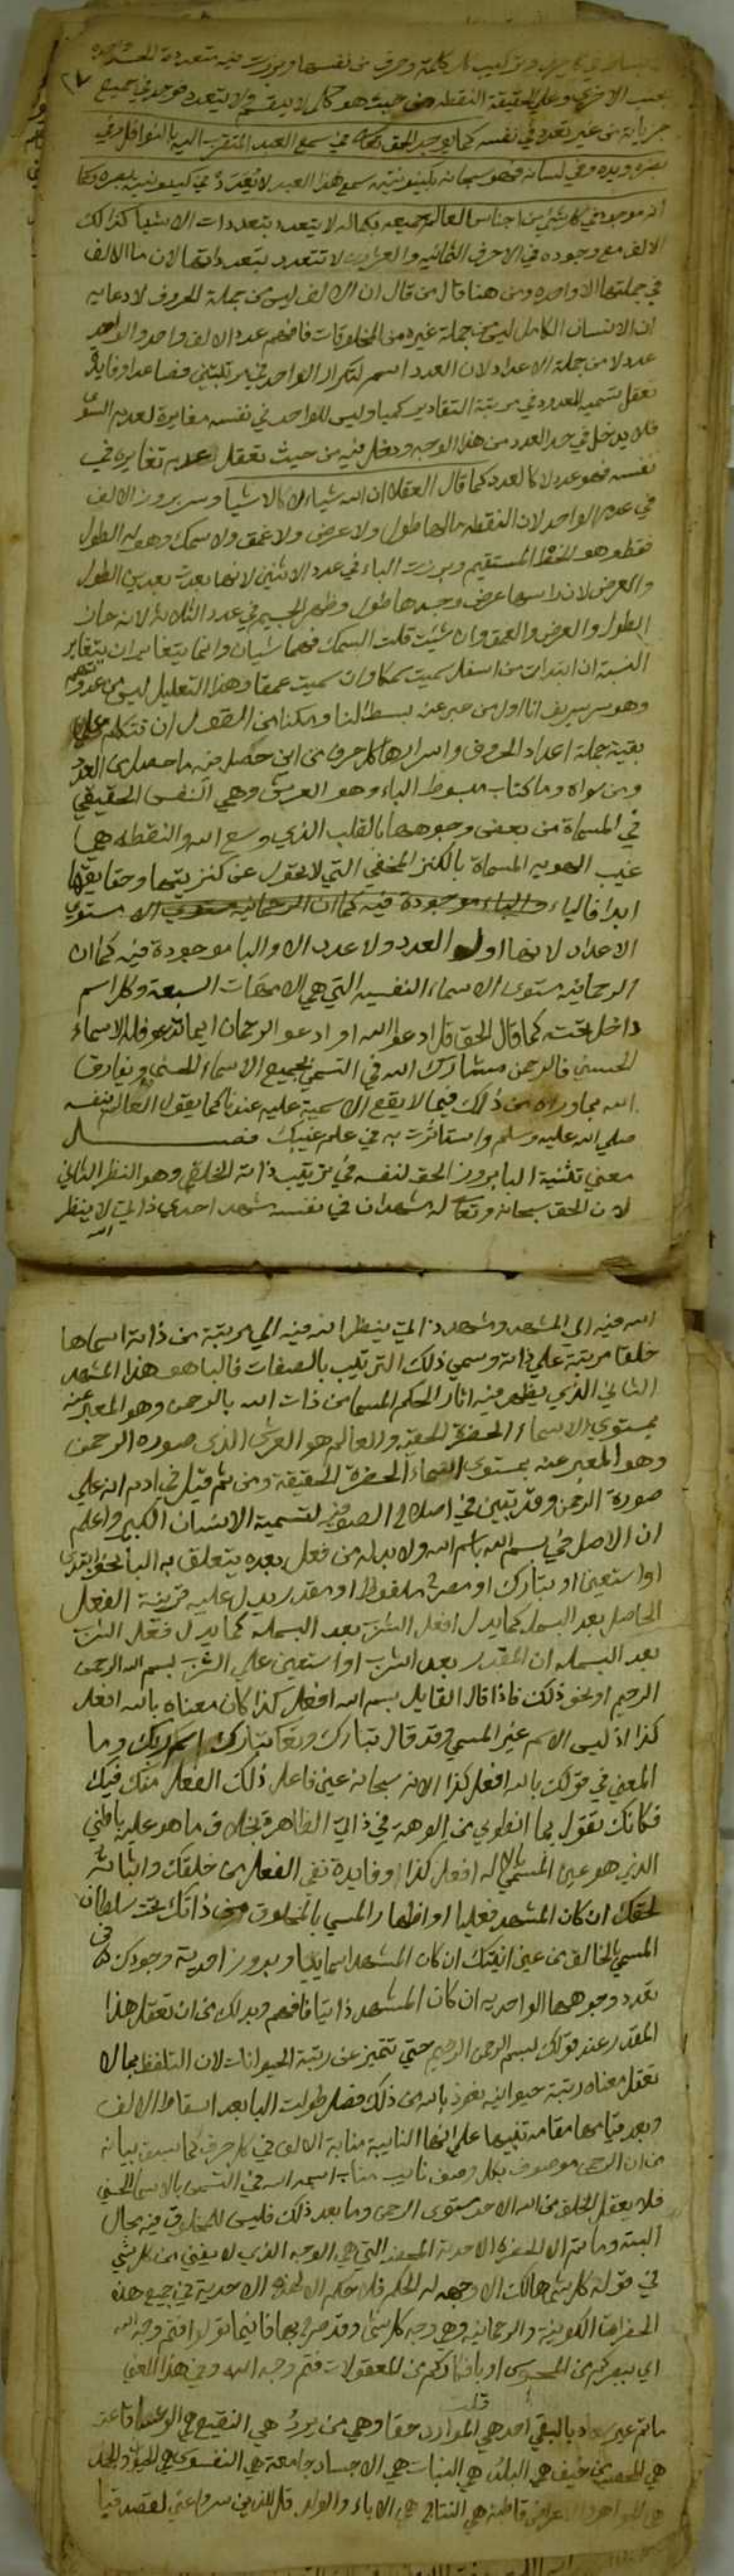 بحسب الاخرى وعلى الحقيقة النقطه من حيث هو كماله لا ينقسم ولا يتعدد موجود في جميع ٢٧
جزياته من غير تعدد في نفسه كما يوجد الحق تعالى في سمع العبد المتقرب اليه بالنوافل وفي
بصره ويده وفي لسانه فهو سبحانه بكينونيته سمع هذا العبد لا يتعدد في كينونيته بصره وكما
انه موجود في كل شي من اجناس العالم جميعه بكماله لا يتعدد بتعددات الاشيا كذالك
الالف مع وجوده في الاحرف الثمانيه والعشرين لا تتعدد بتعدداتها لان ما الالف
في جملتها الا واحده ومن هنا قال من قال ان الالف ليس من جملة الحروف لادعايه
ان الانسان الكامل ليس من جملة غيره من المخلوقات فافهم عدد الالف واحد والواحد
عدد لا من جملة الاعداد لان العدد اسم لتكرار الواحد في مرتبتين فصاعدا وفايدة
تعقل تسميه المعدود في مرتبة التقادير كميا وليس للواحد في نفسه مغايرة لعدم السوى
فلا يدخل في حد العدد من هذا الوجه ودخل فيه من حيث تعقل عدم تغايره في
نفسه فهو عدد لا كالعدد كما قال العقلا ان الله شياء لا كالاشيا وسر بروز الالف
في عدد الواحد لان النقطه ما لها طول ولا عرض ولا عمق ولا سمك وهو له الطول
فقط وهو الخط المستقيم وبرزت الباء في عدد الاثنين لانها بعدت بعدين الطول
والعرض لان راسها عرض وجسدها طول وظهر الجيم في عدد الثلاثة لانه حاز
الطول والعرض والعمق وان شيت قلت السمك فهما شيان وانما يتغايران بتغاير
النسبة ان ابتدات من اسفل سميت سمكا وان سميت عمقا وهذا التعليل ليس من عددتهم
وهو سر شريف انا اول من عبر عنه بسط لنا ومكنا من القول ان نتكلم على
بقية جملة اعداد الحروف واسرارها كل حرف من اين حصل فيه ما حصل من العدد
ومن سواه وما كتاب مبسوط الباء وهو العرش وهي النفس الحقيقي
في المسماة من بعض وجوهها بالقلب الذي وسع الله والنقطه هي
غيب الهويه المسماة بالكنز المخفي التي لا تحول عن كنزيتها وحقايقها
ابدا فالباء
الاعداد لانها اول العدد ولا عدد الا والبا موجودة فيه كما ان
الرحمانيه مستوى الاسماء النفسيه التي هي الامهات السبعة وكل اسم
داخل تحته كما قال الحق قل ادعوا الله او ادعوا الرحمان ايما تدعوا فله الاسماء
الحسنى فالرحمن مشارك الله في التسمي بجميع الاسماء الحسنى ويفارق
الله بما وراه من ذلك فيما لا يقع الاسمية عليه عندنا كما يقول العالم بنفسه
صلى الله عليه وسلم واستاثرت به في علم غيبك فصل
معنى تثنية البا بروز الحق لنفسه في ترتيب ذاته الخلقي وهو النظر الثاني
لان الحق سبحانه وتعالى له مشهدان في نفسه مشهد احدي ذاتي لا ينظر
الله
الله فيه الى المشهد ومشهد ذاتي ينظر الله فيه الى مرتبة من ذاته اسماها
خلقا مرتبة على ذاته وسمى ذلك الترتيب بالصفات فالبا هو هذا المشهد
الثاني الذي يظهر فيه اثار الحكم المسما من ذات الله بالرحمن وهو المعبر عنه
بمستوى الاسماء الحضرة الحقيه والعالم هو العرش الذي صوره الرحمن
وهو المعبر عنه بمستوى اسماء الحضرة الحقيقة ومن ثم قيل في ادم انه على
صورة الرحمن وقد تبين في اصطلاح الصوفيه لتسمية الانسان الكبير واعلم
ان الاصل في بسم الله باسم الله ولا بد له من فعل بعده يتعلق به البا نحو ابتدي
او استعين او تبارك او مصرح ملفوظ او مقدر يدل عليه قرينة الفعل
الحاصل بعد البسمله كما يدل افعل الشرب بعد البسمله كما يدل فعل الشرب
بعد البسمله ان المقدر بعد اشرب او استعين على الشرب بسم الله الرحمن
الرحيم او نحو ذلك فاذا قال القايل بسم الله افعل كذا كان معناه بالله افعل
كذا اذ ليس الاسم غير المسمى وقد قال تبارك وتعا تبارك اسم ربك وما
المعنى في قولك بالله افعل كذا الا انه سبحانه عين فاعل ذلك الفعل منك فيك
فكانك تقول بما انطوي من الوهته في ذاتي الظاهرة بخلاف ما هو عليه باطني
الذي هو عين المسمى بالاله افعل كذا وفايدة نفي الفعل من خلقك واثباته
لحقك ان كان المشهد فعليا او اظهار المسمى بالمخلوق من ذاتك تحت سلطان
المسمى بالخالق من عين انيتك ان كان المشهد اسمايا وبروز احدية وجودك في
تعدد وجوهها الواحديه ان كان المشهد ذاتيا فافهم وبد لك من ان تعقل هذا
المقدر عند قولك بسم الله الرحمن الرحيم حتى تتميز عن رتبة الحيوانات لان التلفظ بما لا
تعقل معناه رتبة حيوانيه نعوذ بالله من ذلك فصل طولت البا بعد اسقاط الالف
وبعد قيامها مقامه تنبيها على انها النايبة منابة الالف في كل حرف كما سبق بيانه
من ان الرحمن موصوف بكل وصف نايب مناب اسمه الله في التسمى بالاسما الحسنى
فلا يعقل الخلق من الله الا حد مستوى الرحمن وما بعد ذلك فليس للمخلوق فيه مجال
البتة وما ثم الا الحضرة الاحدية المحضه التي هي الوجه الذي لا يفنى من كل شي
في قوله كل شي هالك الا وجهه له الحكم فله حكم الاحدية في جميع هذه
الحضرات الكونية والرحمانيه وهي وجه كل شي وقد صرح بها فاينما تولوا فثم وجه الله
اي ببصركم من المحسوس او بافكاركم من المعقولات فثم وجه الله وفي هذا المعنى
قلت
ما ثم غير سعاد بالنقي احد هي الموارد حقا وهي من يرد هي النقيع
هي المحصب من خيف هي البلد هي النبات هي الاجساد جامعة هي النفوس هي
هي الجواهر والاعراض قاطبة هي النتاج هي الاباء والولد قل للذين